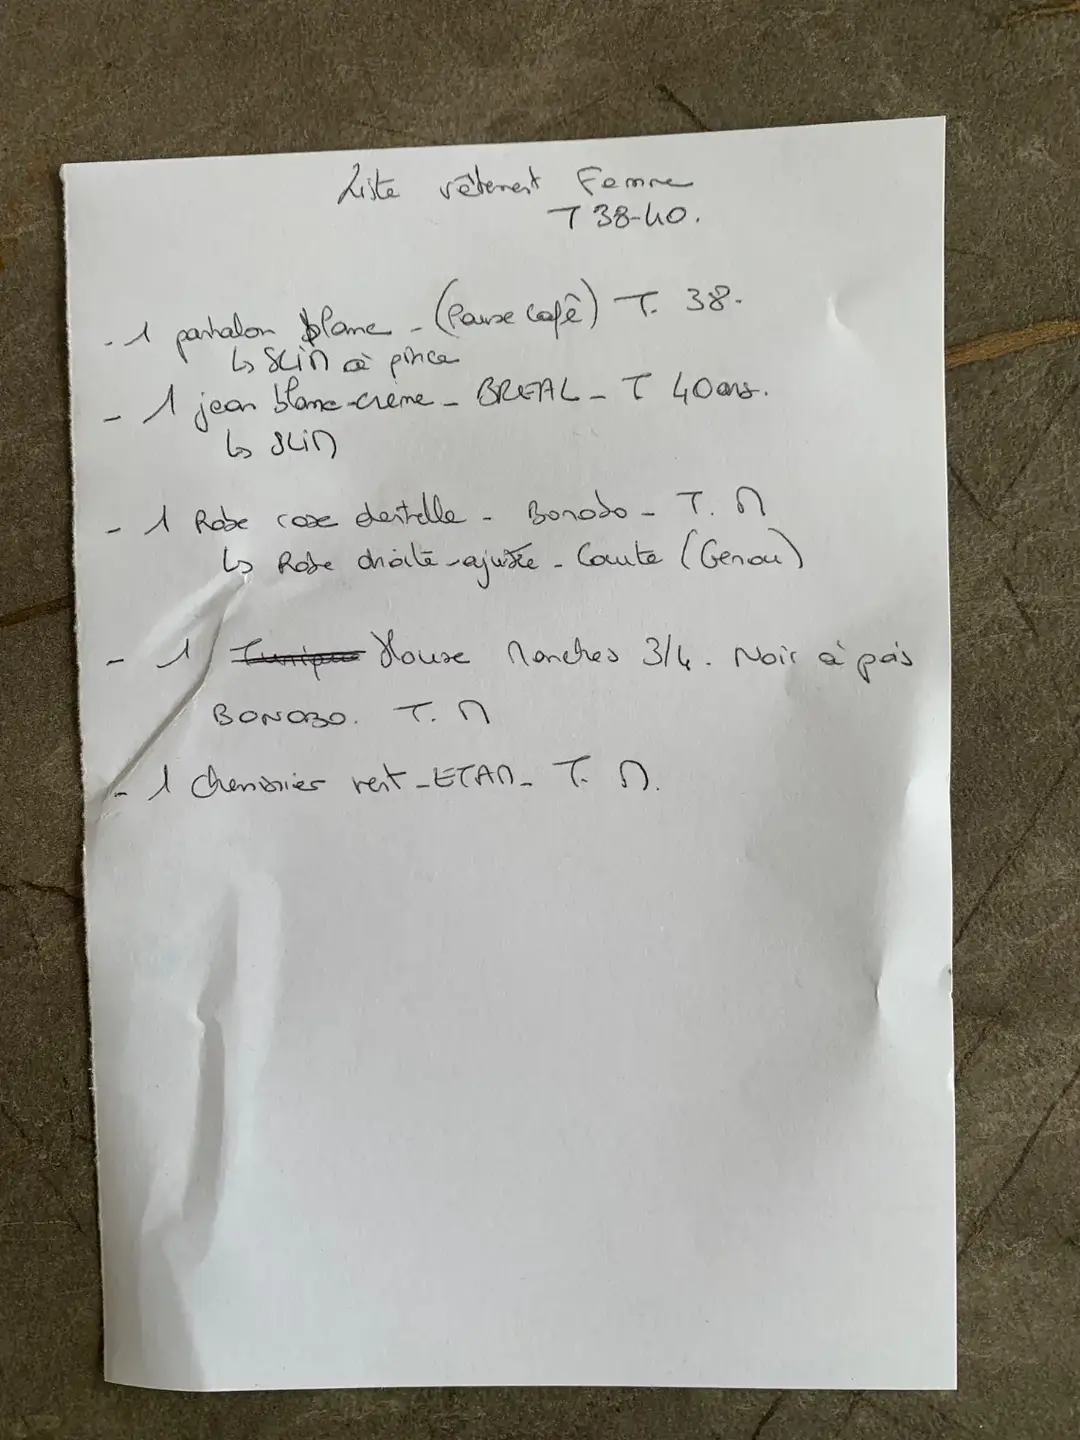 Liste vêtement Femme
T 38-40.
- 1 pantalon blanc - (Pause Café) T. 38.
↳ SLIM à pince
- 1 jean blanc-crème - BREAL - T 40 ans.
↳ SLIM
- 1 Robe rose dentelle - Bonobo - T. M
↳ Robe droite-ajustée - Courte (Genou)
- 1 Tunique blouse Manches 3/4. Noir à pois
BONOBO. T. M
- 1 chemisier vert - ETAM - T. M.